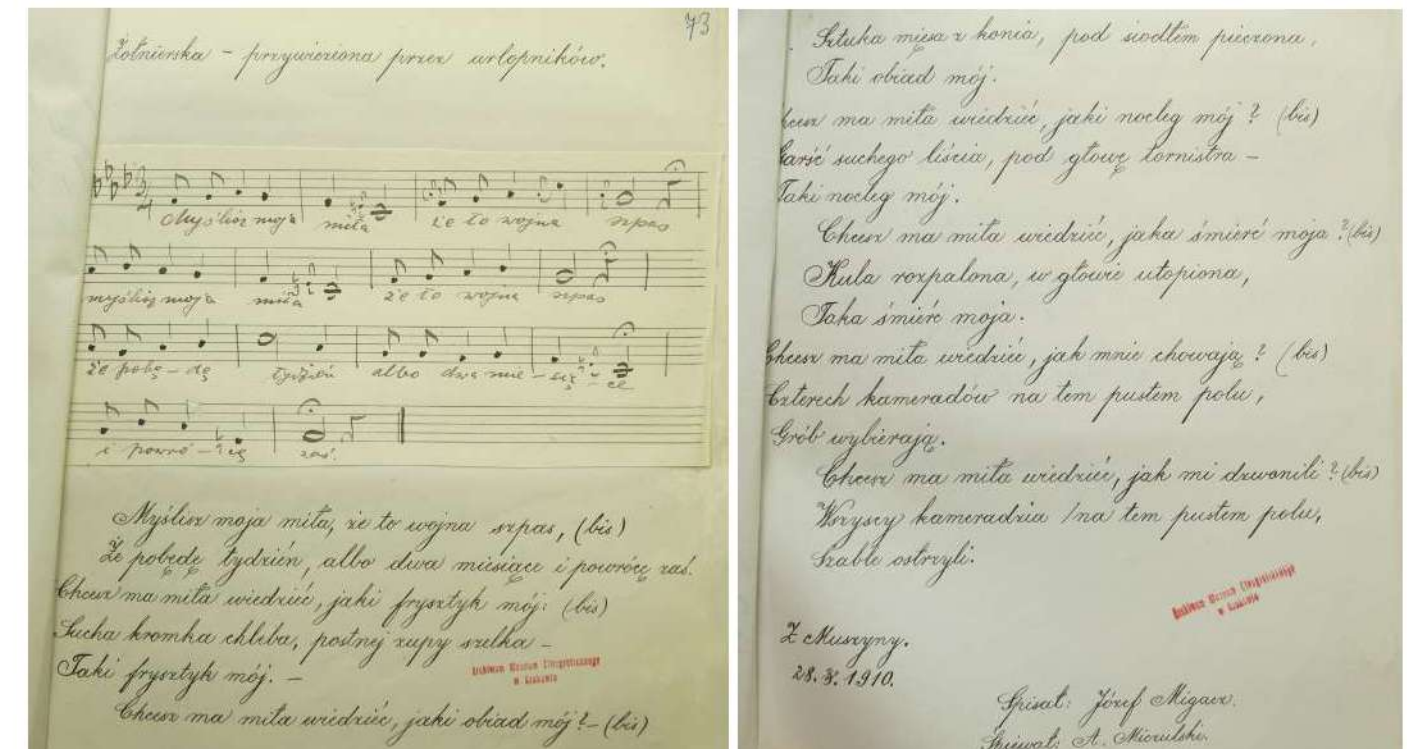 73
Żołnierska – przywieziona przez urlopników.
Myślisz moja miła że to wojna szpas
myślisz moja miła że to wojna szpas
że pobę-dę tydzień albo dwa mie-sią-ce
i powró-cę zaś.
Myślisz moja miła, że to wojna szpas, (bis)
Że pobędę tydzień, albo dwa miesiące i powrócę zaś.
Chcesz ma miła wiedzieć, jaki frysztyk mój: (bis)
Sucha kromka chleba, postnej zupy szelka –
Taki frysztyk mój. –
Chcesz ma miła wiedzieć, jaki obiad mój? – (bis)
Archiwum Muzeum Etnograficznego
w Krakowie
Sztuka mięsa z konia, pod siodłem pieczona,
Taki obiad mój.
Chcesz ma miła wiedzieć, jaki nocleg mój? (bis)
Garść suchego liścia, pod głowę tornistra –
Taki nocleg mój.
Chcesz ma miła wiedzieć, jaka śmierć moja? (bis)
Kula rozpalona, w głowie utopiona,
Taka śmierć moja.
Chcesz ma miła wiedzieć, jak mnie chowają? (bis)
Czterech kameradów na tem pustem polu,
Grób wybierają.
Chcesz ma miła wiedzieć, jak mi dzwonili? (bis)
Wszyscy kameradzia /na tem pustem polu,
Szable ostrzyli.
Archiwum Muzeum Etnograficznego
w Krakowie
Z Muszyny.
28. X. 1910.
Spisał: Józef Migacz.
Śpiewał: A. Miczulski.